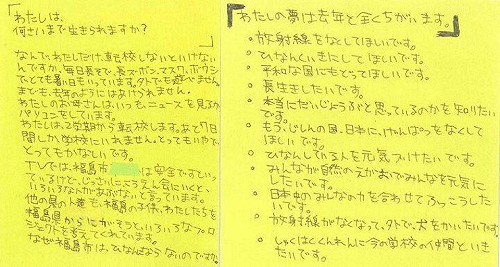 「わたしは、
何さいまで生きられますか?」
なんで、わたしだけ、転校しないといけない
んですか。毎日長そで、長ズボン、マスク、ボウシ
でとても暑い日もいっています。外でも遊べません。
まども、去年のようにはあけられません。
わたしのお母さんは、いつもニュースを見るか
パソコンをしています。
わたしは、2学期から転校します。あと7日
間しか、学校にいれません。とってもいやで、
とってもかなしいです。
TVでは、福島市は安全ですといっ
ているけど、じっさいにこうえん会にいくと、
いろいろな人があぶないと言っています。
他の県の人達も、福島の子供、わたしたちを
福島県からにがそうと、いろいろなプロ
ジェクトを考えてくれています。
なぜ福島市は、ひなんさならないのですか。
「わたしの夢は去年と全くちがいます。」
・放射線をなくしてほしいです。
・ひなんくいきにしてほしいです。
・平和な国にもどってほしいです。
・長生きしたいです。
・本当にだいじょうぶと思っているのかを知りたい
です。
・もう、じしんの国、日本に、げんぱつをなくして
ほしいです。
・ひなんしている人を元気づけたいです。
・みんなが自然のえがおでみんなを元気に
したいです。
・日本中のみんなの力を合わせてふっこうした
いです。
・放射線がなくなって、外で、犬をかいたいです。
・しゅくはくくんれんに今の学校の仲間といき
たいです。